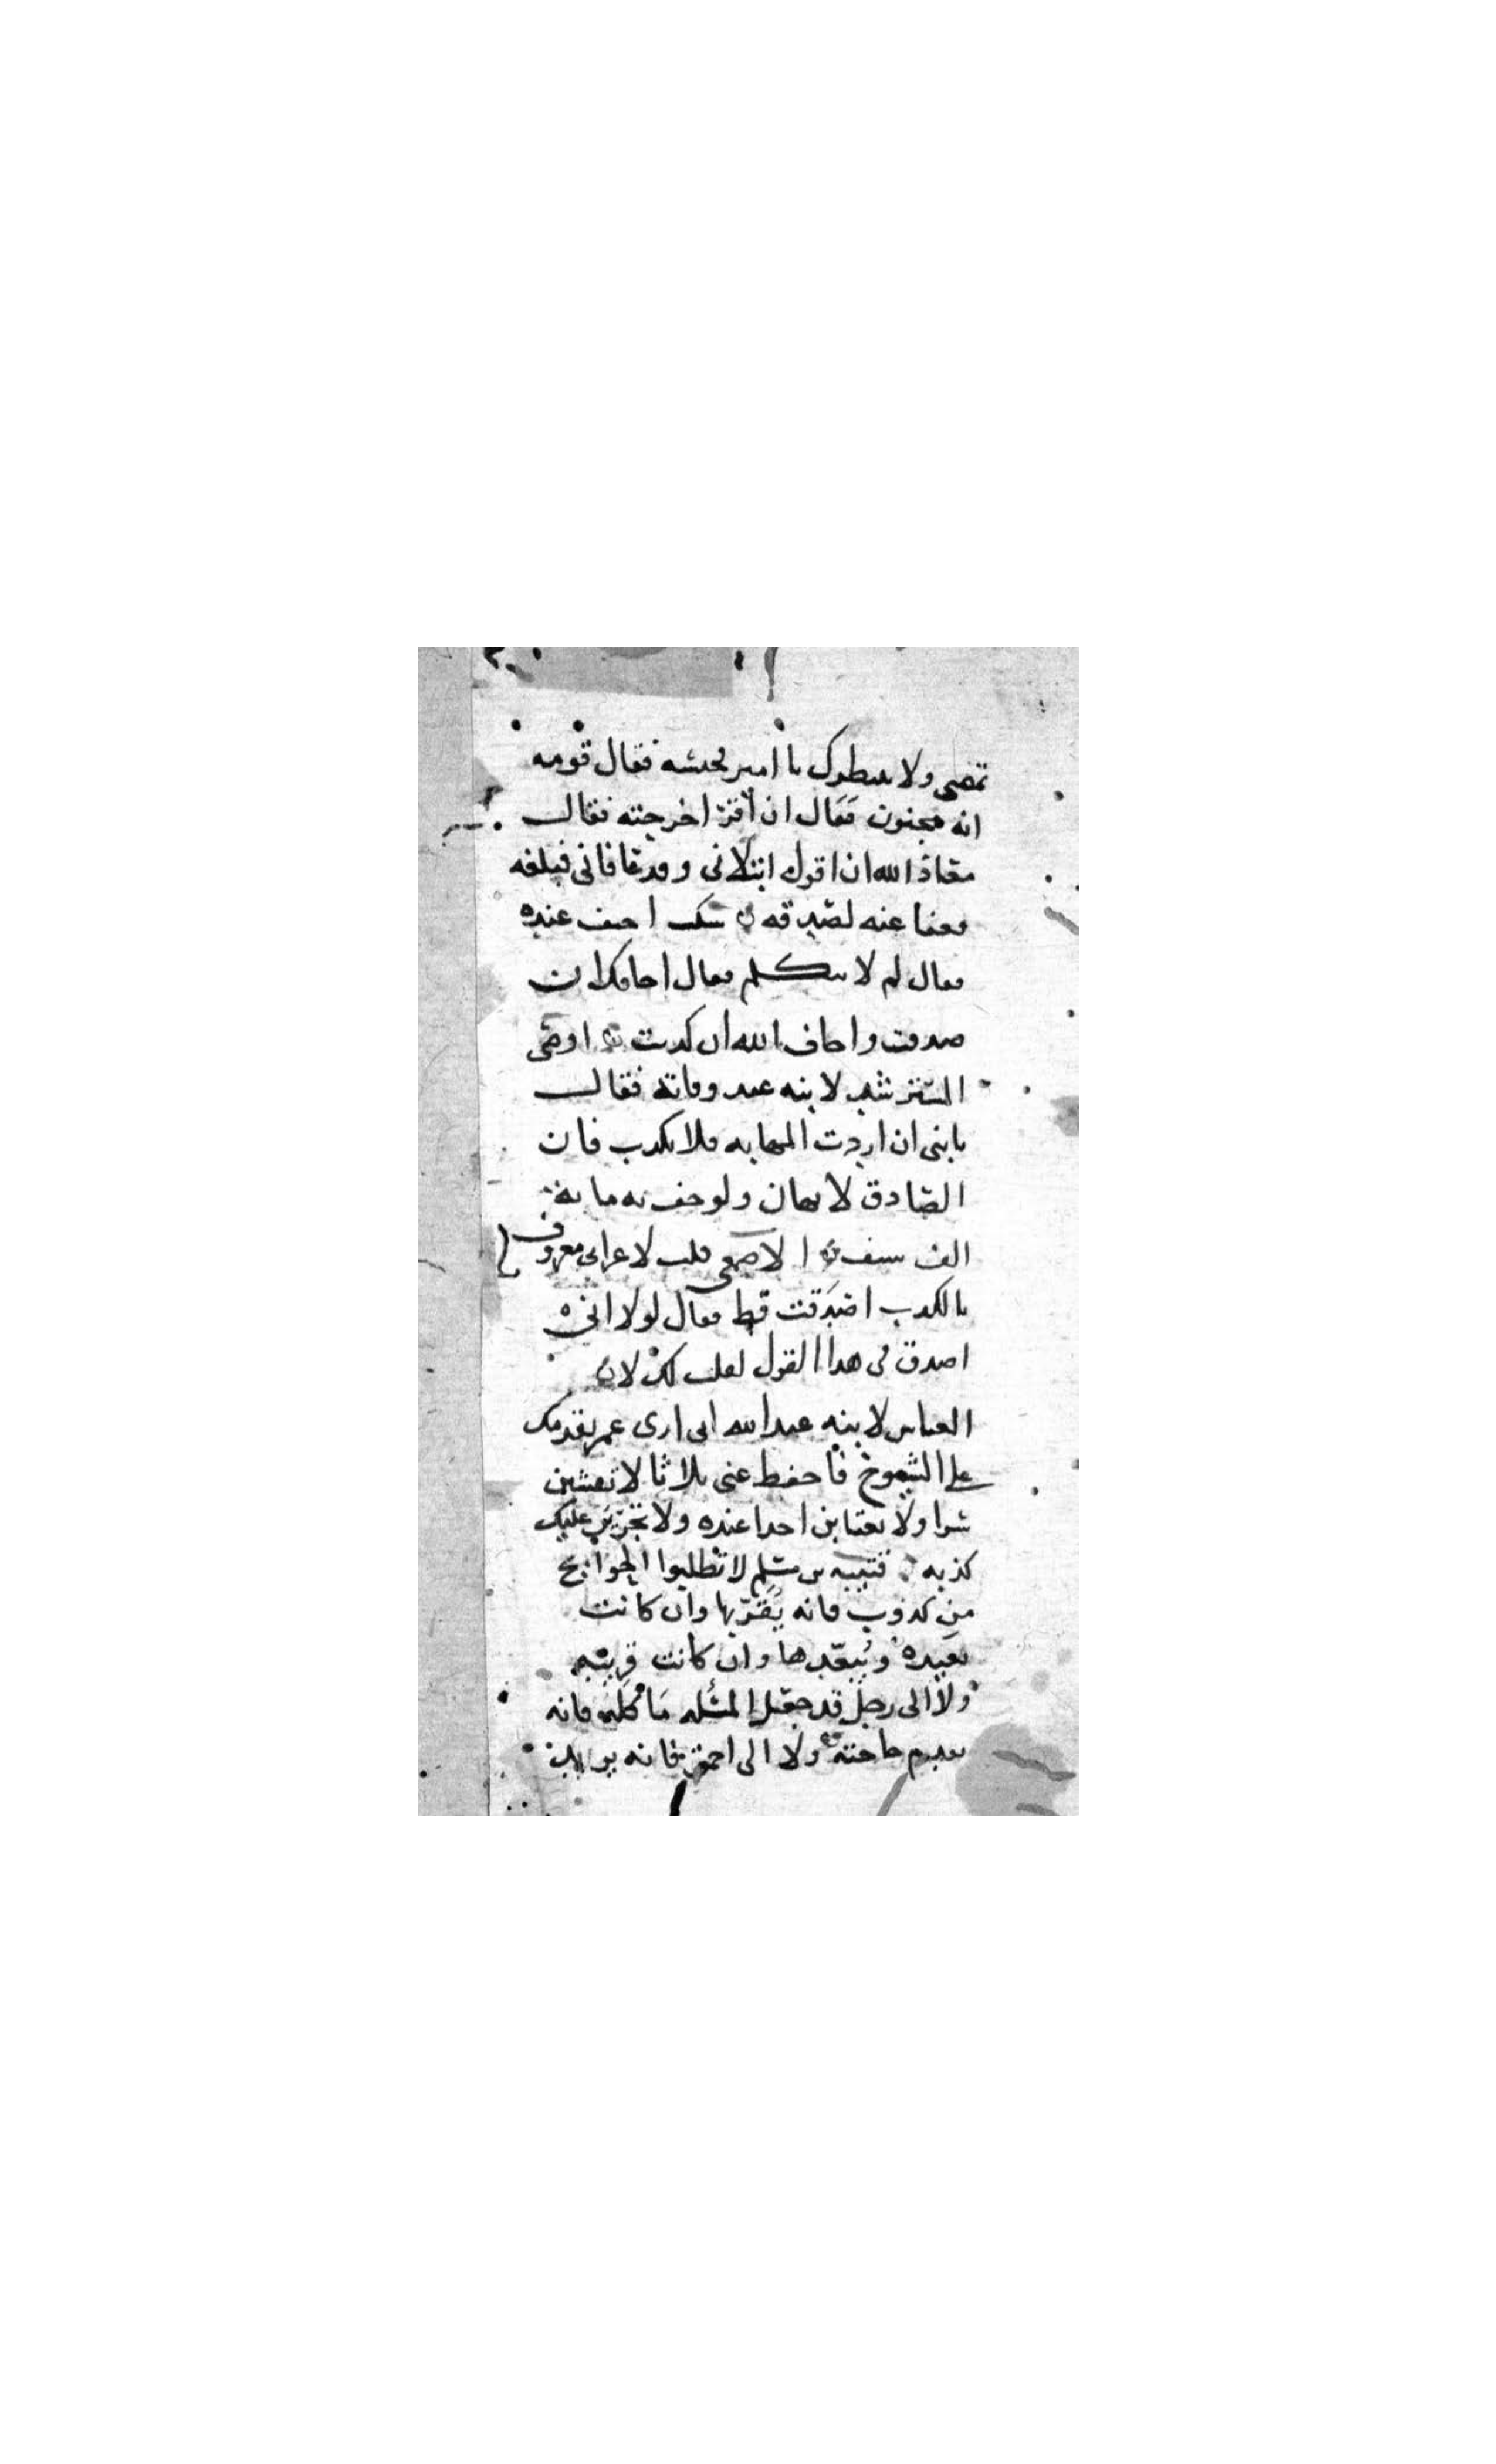 تمضى ولا ينتظرك يا امير فحبسه فقال قومه
انه مجنون فقال ان اقرّ اخرجته فقال
معاذ الله ان اقول ابتلانى وقد عافانى فبلغه
فعفا عنه لصدقه سكت احنف عنده
فقال لم لا تتكلم فقال اخافك ان
صدقت واخاف الله ان كذبت اوصى
المسترشد لابنه عند وفاته فقال
يا بنى ان اردت المهابه فلا تكذب فان
الصادق لا يهان ولو حف به مائة
الف سيف الاصمعى قلت لاعرابى معروف
بالكذب اصدقت قط فقال لولا انى
اصدق فى هذا القول لقلت لك لا
العباس لابنه عبد الله انى ارى عمر يقدمك
على الشيوخ فاحفظ عنى ثلاثا لا تفشين
سرا ولا تغتابن احدا عنده ولا تجرّبن عليك
كذبه قتيبه بن مسلم لا تطلبوا الحوائج
من كذوب فانه يُقَرّبها وان كانت
بعيده ويُبعّدها وان كانت قريبه
ولا الى رجل قد جعل المسئله مأكله فانه
يقدم حاجته ولا الى احمق فانه يريد